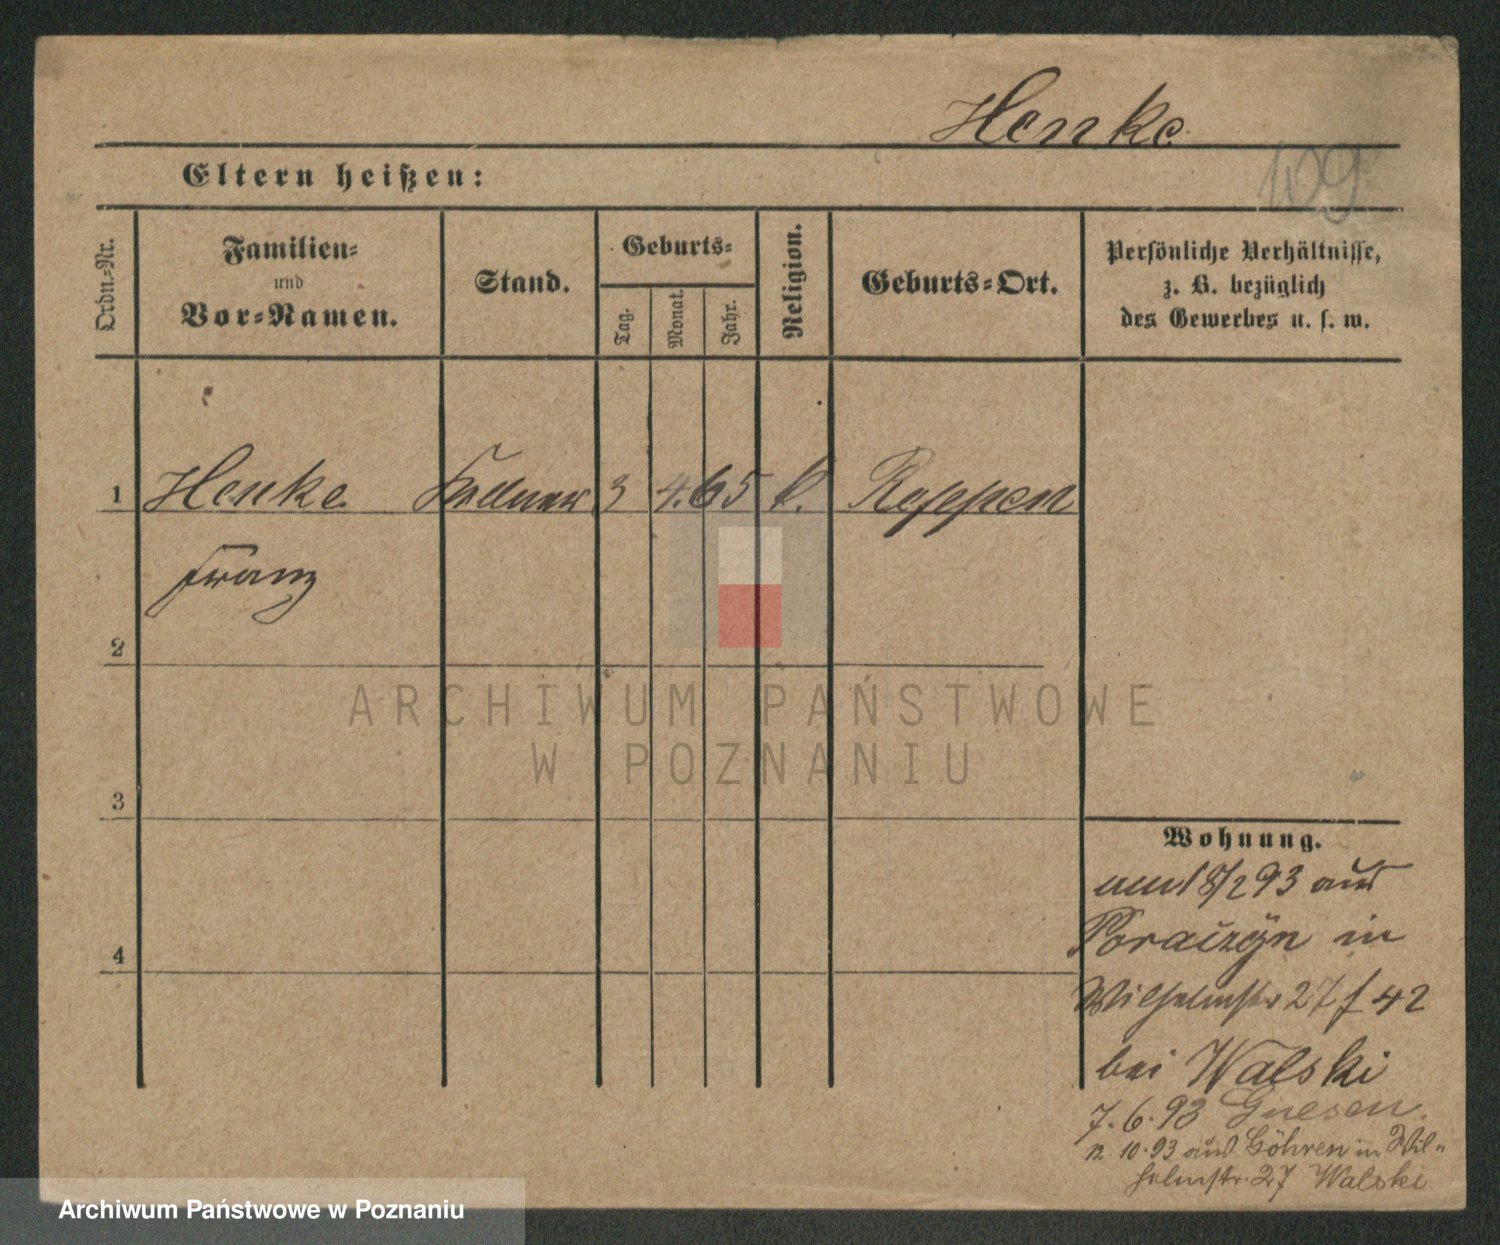 Henke
109
Eltern heißen:
Ordn.-Nr.
Familien-
und
Vor-Namen.
Stand.
Geburts-
Tag.
Monat.
Jahr.
Religion.
Geburts-Ort.
Persönliche Verhältnisse,
z. B. bezüglich
des Gewerbes u. s. w.
1 Henke Kellner 3 4. 65 k. Reppen
Franz
2
3
4
ARCHIWUM PAŃSTWOWE
W POZNANIU
Wohnung.
18/2 93 aus
Porażyn in
Wilhelmstr 27 f 42
bei Walski
7. 6. 93 Gnesen.
12. 10. 93 aus Göhren in Wil-
helmstr. 27 Walski
Archiwum Państwowe w Poznaniu